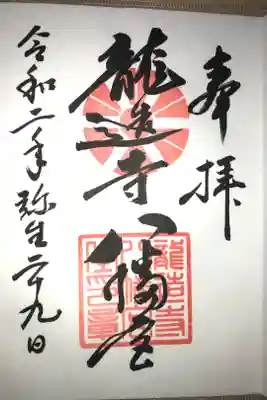 奉拝
龍造寺八幡宮
令和二年弥生二十九日
龍造寺